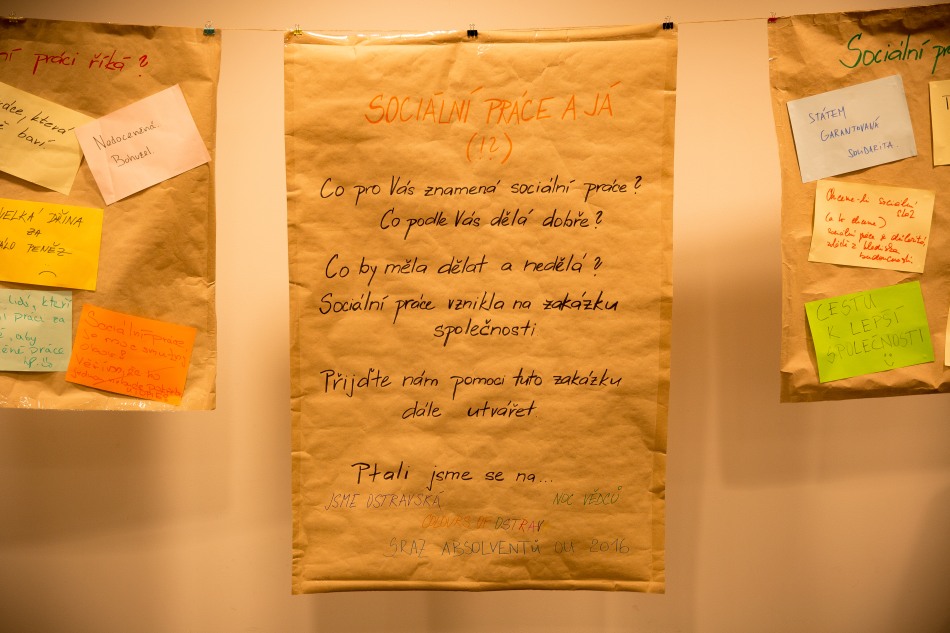 ní práci říká?
ráce, která
ě baví
Nedoceněná
Bohužel
VELKÁ DŘINA
ZA
MÁLO PENĚZ
lidé, kteří
práci za
aby
práce
Sociální práce
SOCIÁLNÍ PRÁCE A JÁ
(!?)
Co pro Vás znamená sociální práce?
Co podle Vás dělá dobře?
Co by měla dělat a nedělá?
Sociální práce vznikla na zakázku
společnosti
Přijďte nám pomoci tuto zakázku
dále utvářet
Ptali jsme se na...
JSME OSTRAVSKÁ
NOC VĚDCŮ
COLOURS OF OSTRAVA
SRAZ ABSOLVENTŮ OU 2016
Sociální pr
STÁTEM
GARANTOVANÁ
SOLIDARITA
Chceme-li sociální
stát
(a to chceme)
sociální práce je důležitá
z hlediska
budoucnosti
CESTU
K LEPŠÍ
SPOLEČNOSTI